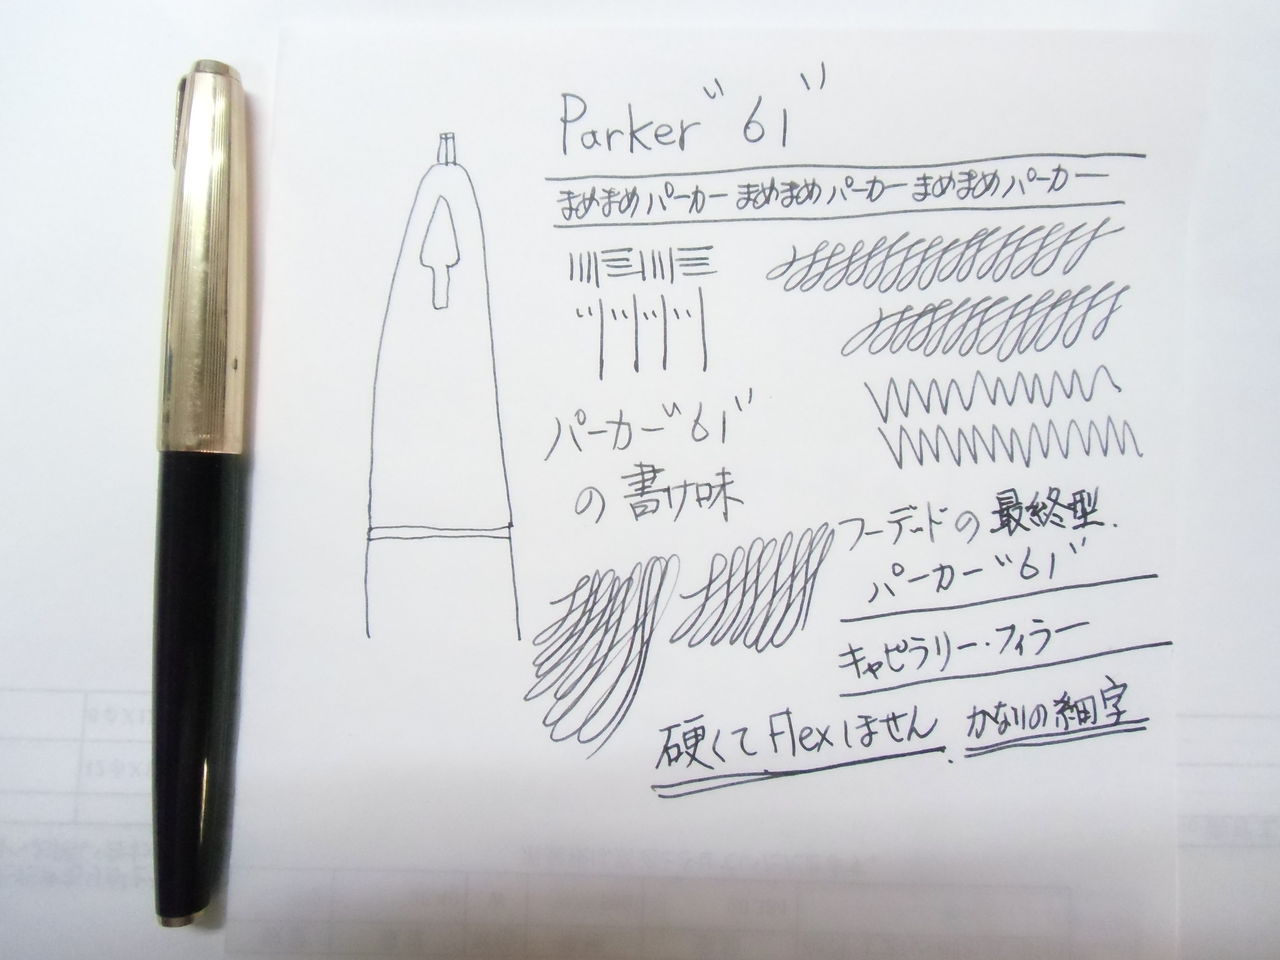 Parker "61"
まめまめパーカーまめまめパーカーまめまめパーカー
パーカー"61"
の書け味
フーデッドの最終型.
パーカー"61"
キャピラリー・フィラー
硬くてFlexしません. かなりの細字